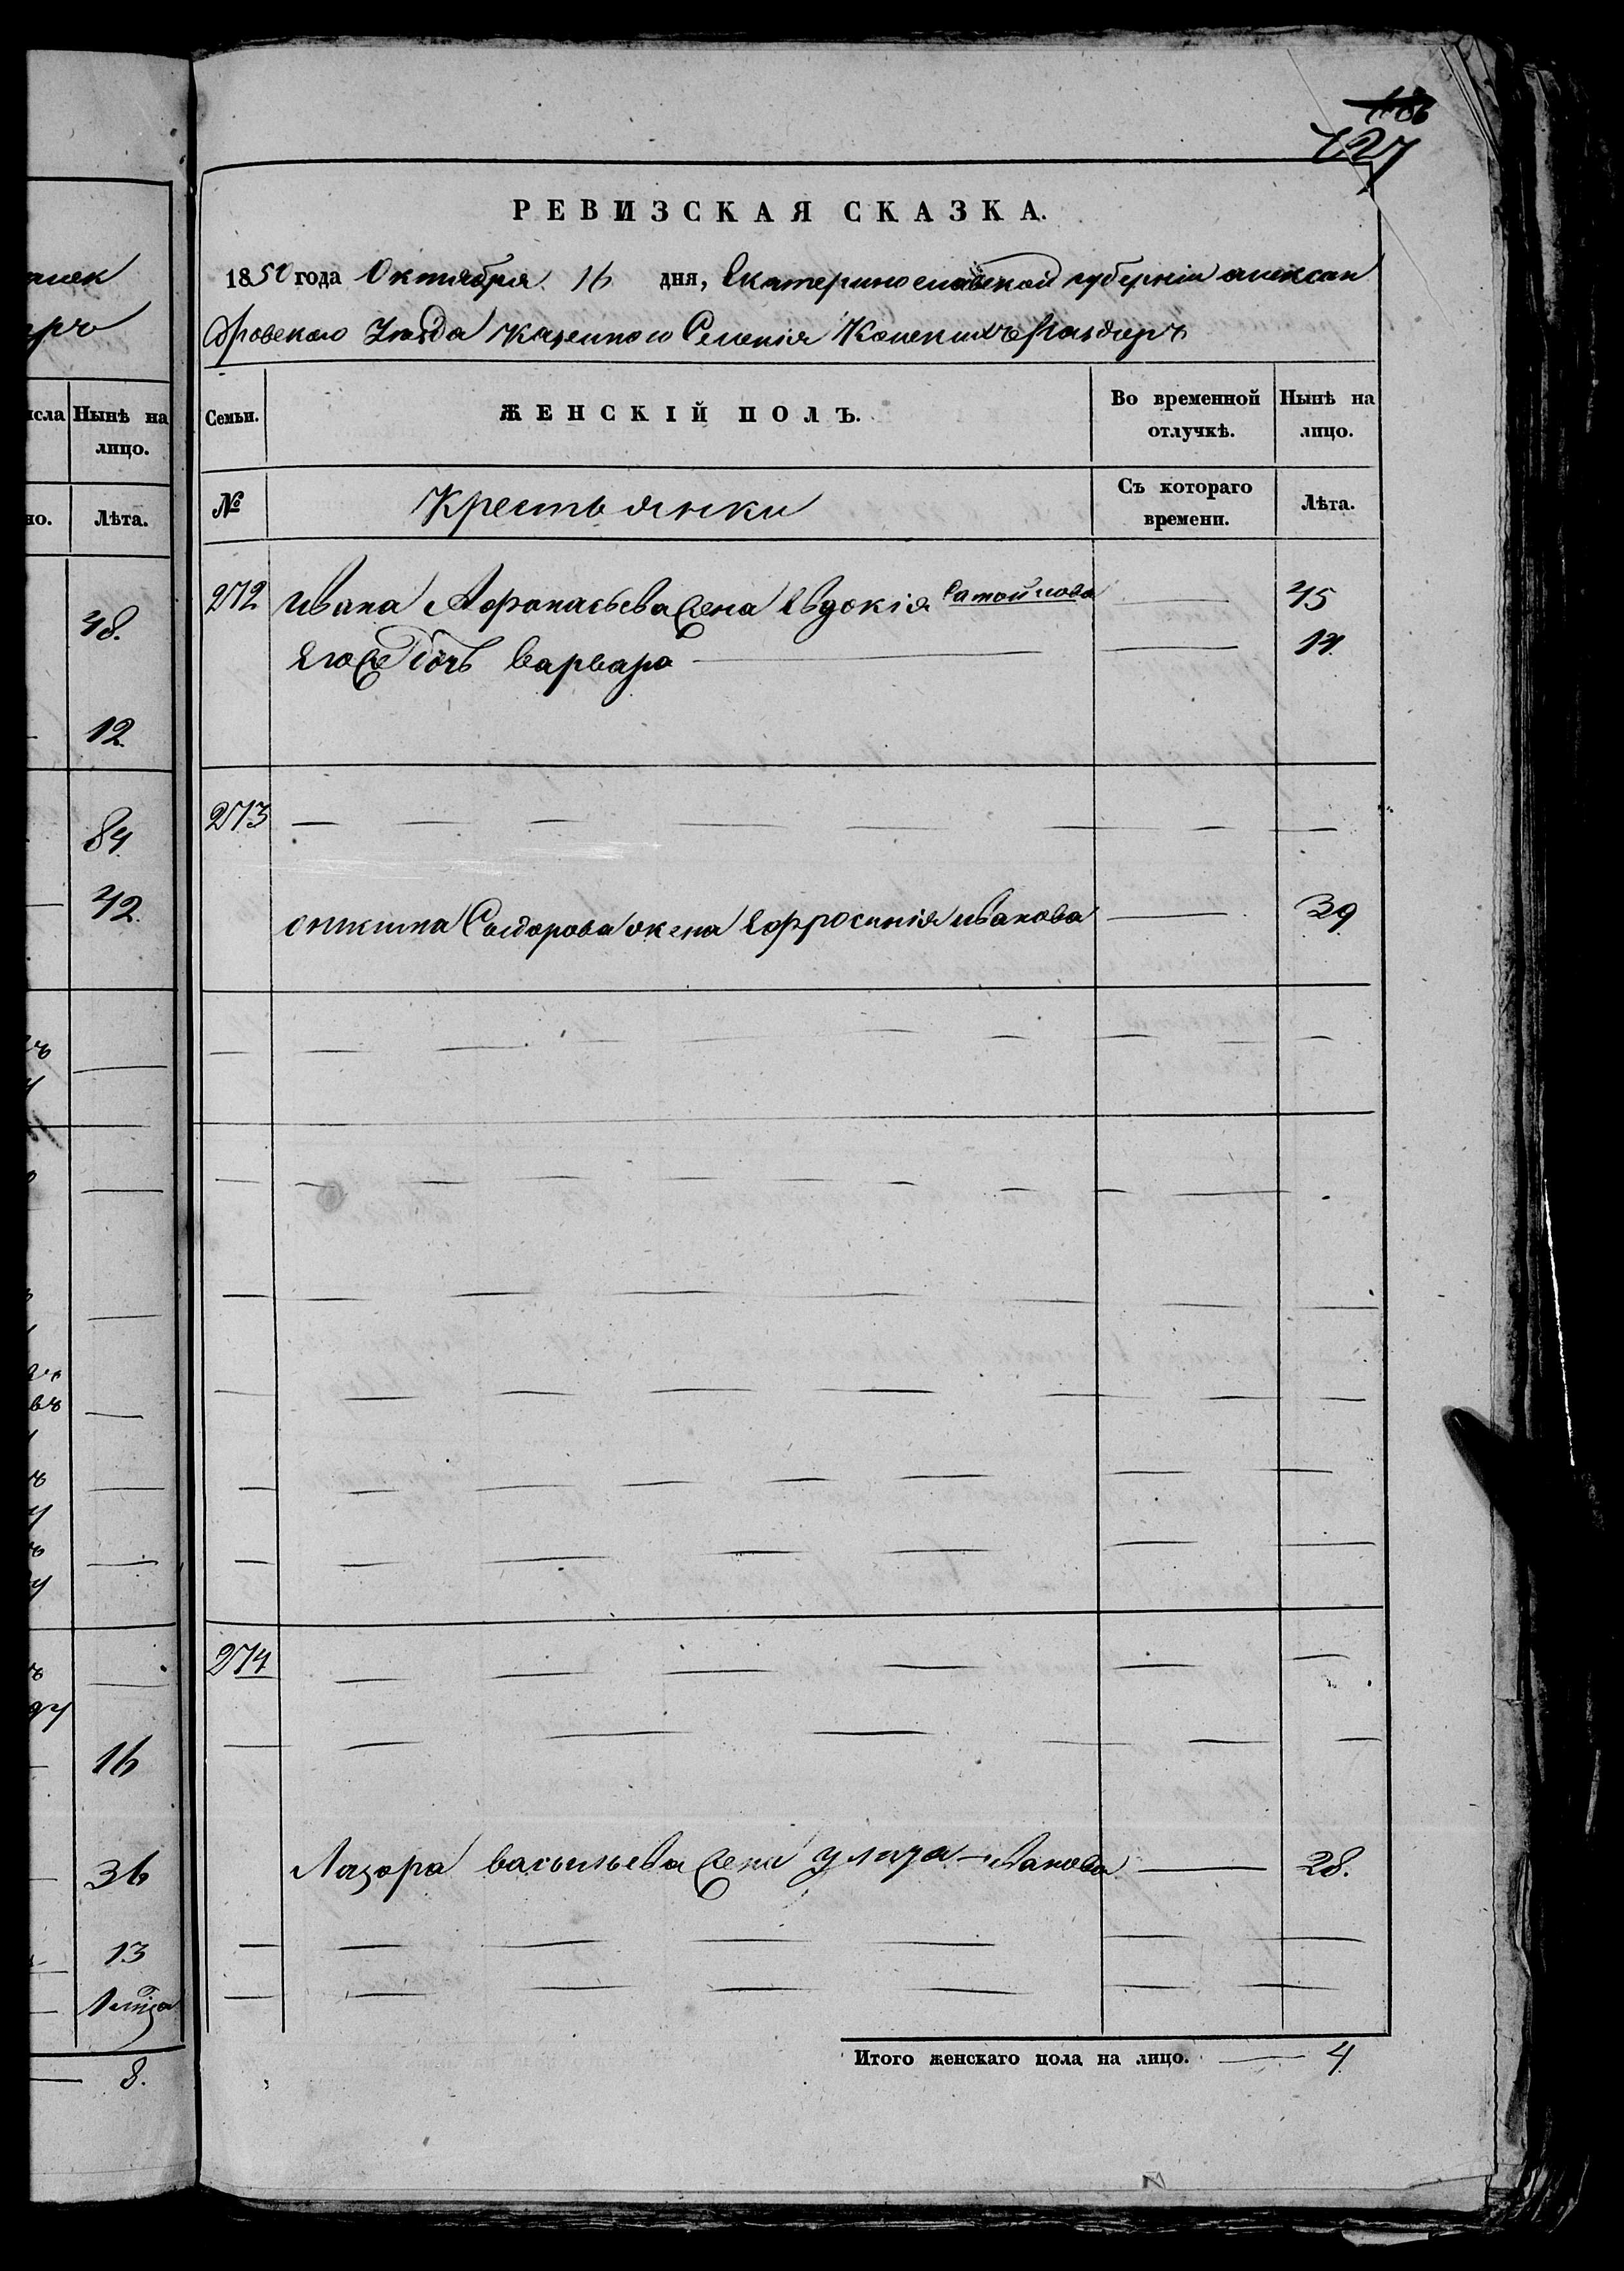 186
727
РЕВИЗСКАЯ СКАЗКА.
1850 года Октября 16 дня, Екатеринославской губерніи алексан
дровского Уезда казенного Селенія Конскихъ Раздоръ
Семьи. ЖЕНСКІЙ ПОЛЪ. Во временной отлучкѣ. Нынѣ на лицо.
№ Крестьянки Съ котораго времени. Лѣта.
272 Ивана Афонасьева жена Евдокія Самойлова — 45
Егоже дочь варвара — — 14
273 — — — — — — — —
оникина Сидорова жена Ефросинія иванова — 39
274 — — — — — —
Лазора васильева жена улита иванова — 28.
Итого женскаго пола на лицо. — 4
Нынѣ на
лицо.
но. Лѣта.
48.
12
84
42.
16
36
13
8.